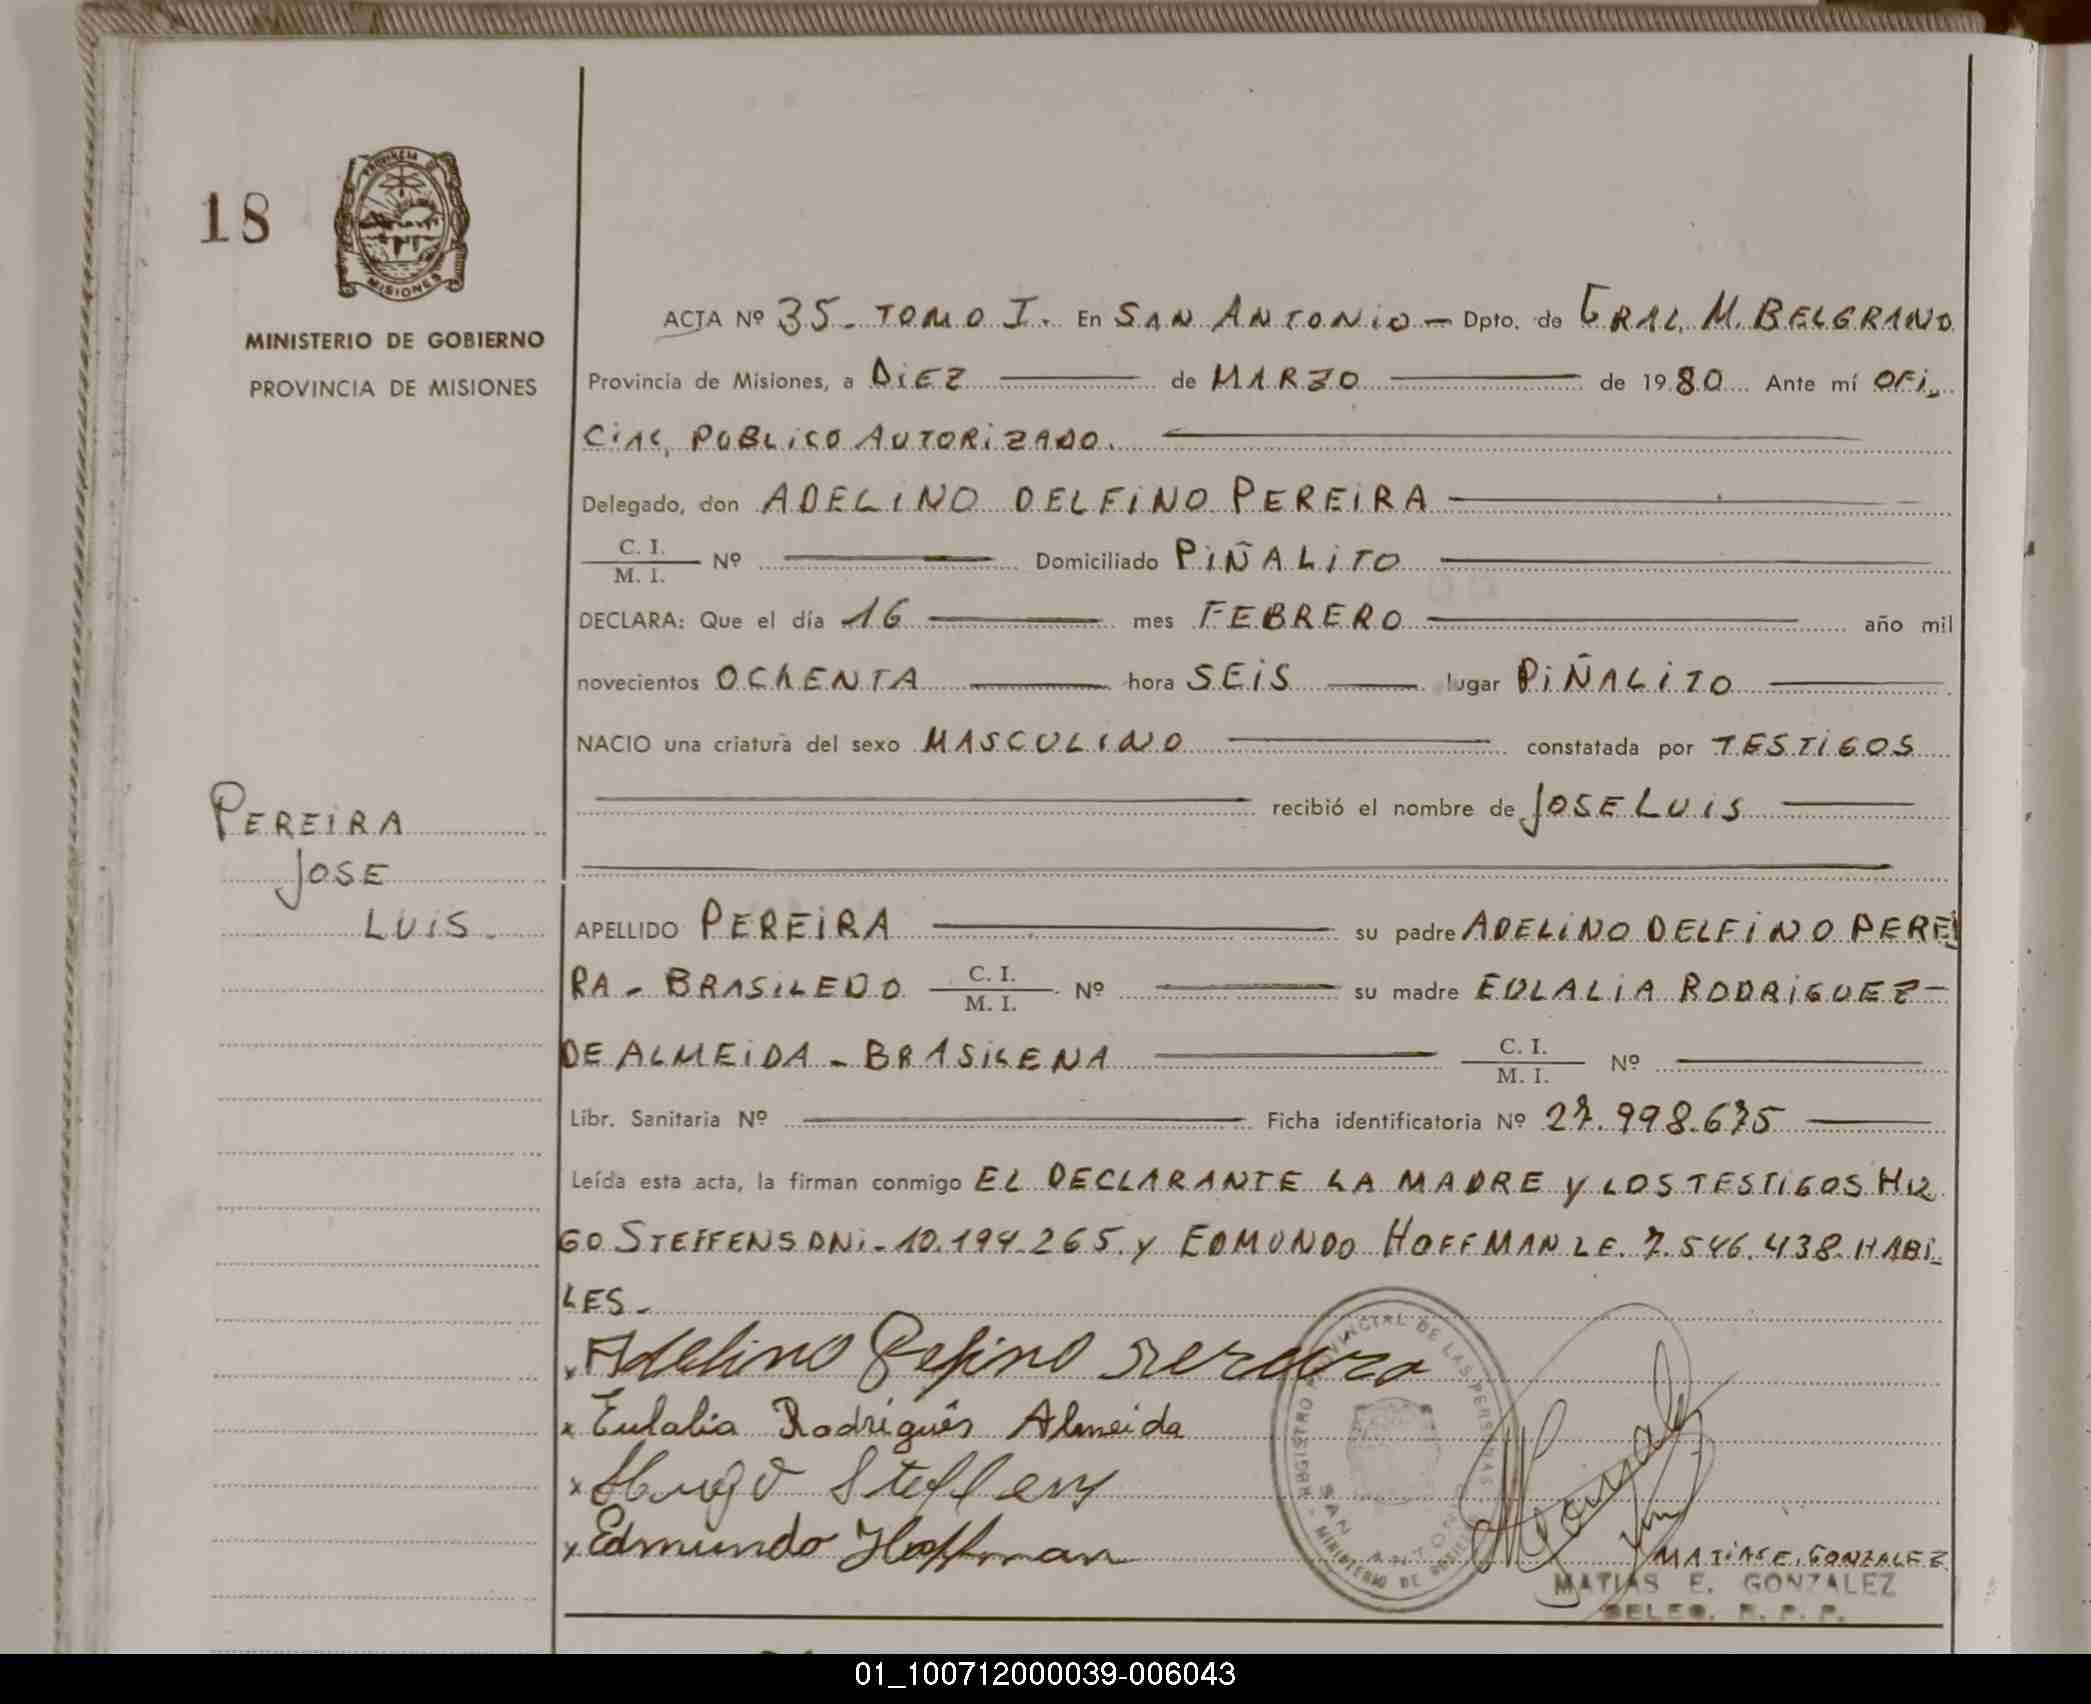 18
PROVINCIA DE
MISIONES
MINISTERIO DE GOBIERNO
PROVINCIA DE MISIONES
ACTA Nº 35- TOMO I. En SAN ANTONIO - Dpto. de GRAL. M. BELGRANO
Provincia de Misiones, a DIEZ de MARZO de 1980 Ante mí OFI-
CIAL PUBLICO AUTORIZADO.
Delegado, don ADELINO DELFINO PEREIRA
C. I.
M. I. Nº Domiciliado PIÑALITO
DECLARA: Que el día 16 mes FEBRERO año mil
novecientos OCHENTA hora SEIS lugar PIÑALITO
NACIO una criatura del sexo MASCULINO constatada por TESTIGOS
recibió el nombre de JOSE LUIS
PEREIRA
JOSE
LUIS.
APELLIDO PEREIRA su padre ADELINO DELFINO PEREI
RA - BRASILEÑO C. I. M. I. Nº su madre EULALIA RODRIGUEZ-
DE ALMEIDA - BRASILENA C. I. M. I. Nº
Libr. Sanitaria Nº Ficha identificatoria Nº 27.998.675
Leída esta acta, la firman conmigo EL DECLARANTE LA MADRE y LOS TESTIGOS HU
GO STEFFENS DNI-10.194.265 y EDMUNDO HOFFMAN LE. 7.546.438 HABI-
LES-
x Adelino Delfino Pereira
x Eulalia Rodrigues Almeida
x Hugo Steffens
x Edmundo Hoffman
REGISTRO PROVINCIAL DE LAS PERSONAS
SAN ANTONIO
MINISTERIO DE GOBIERNO
MATIAS E. GONZALEZ
MATIAS E. GONZALEZ
DELEG. R. P. P.
01_100712000039-006043